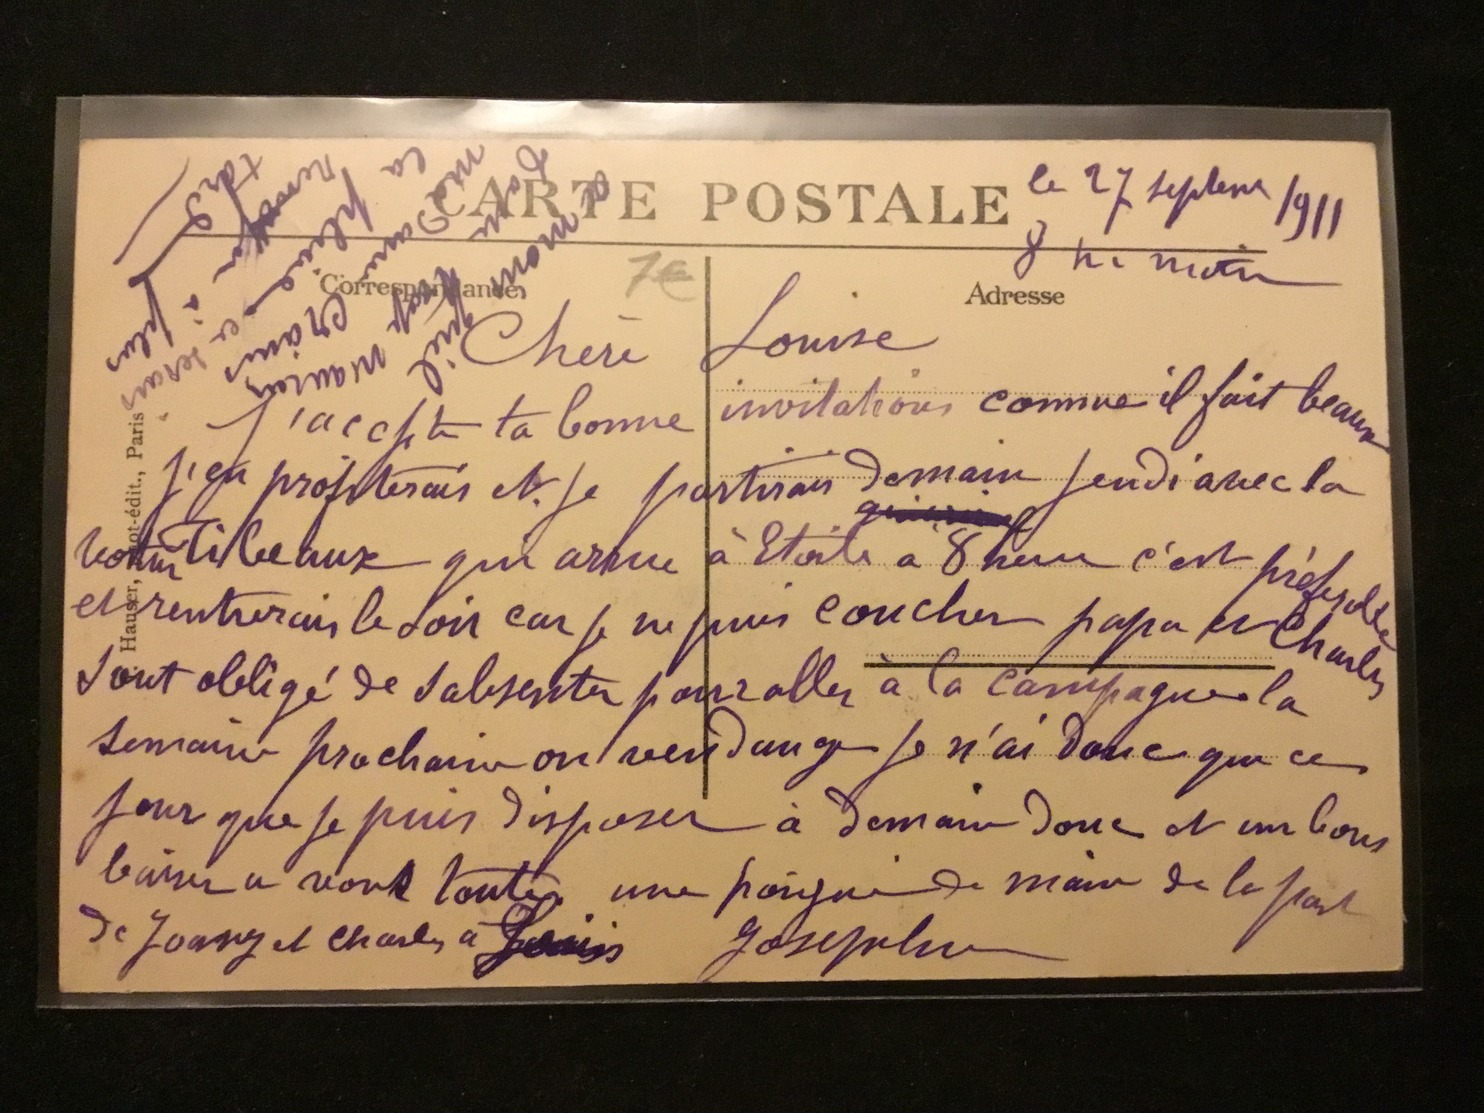 CARTE POSTALE
le 27 septembre 1911
8 h. matin
Correspondance
Adresse
7€
Hauser, édit., Paris
Chère Louise
J'accepte ta bonne invitations comme il fait beaux
j'en profiterais et je partirais demain jeudi avec la
voiture Tibeaux qui arrive à Etoile à 8 heure c'est préférable
et rentrerais le soir car je ne puis coucher papa et Charles
sont obligé de sabsenter pour aller à la campagne la
semaine prochaine on vendange je n'ai donc que ce
jour que je puis disposer à demain donc et un bons
baiser a vous toutes une poignée de main de la part
de Joany et Charles à
Josephine
qu'il
crains
la pluie
renvoyer à
plus
tard